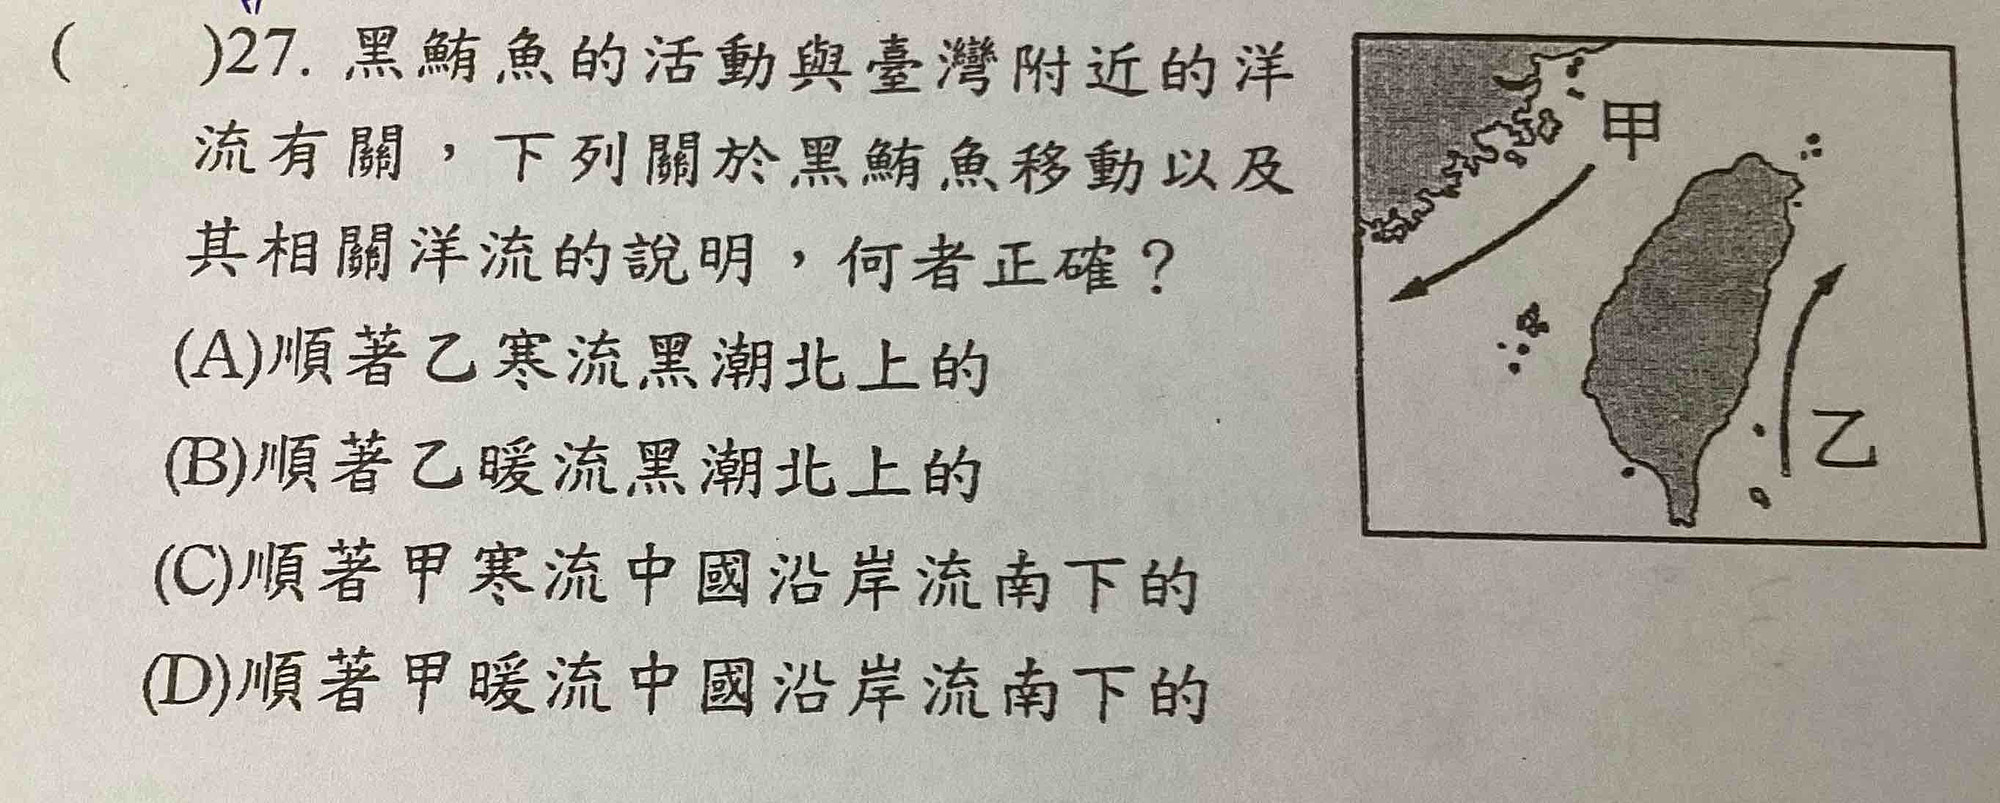 (　　)27. 黑鮪魚的活動與臺灣附近的洋
流有關，下列關於黑鮪魚移動以及
其相關洋流的說明，何者正確？
(A)順著乙寒流黑潮北上的
(B)順著乙暖流黑潮北上的
(C)順著甲寒流中國沿岸流南下的
(D)順著甲暖流中國沿岸流南下的
甲
乙